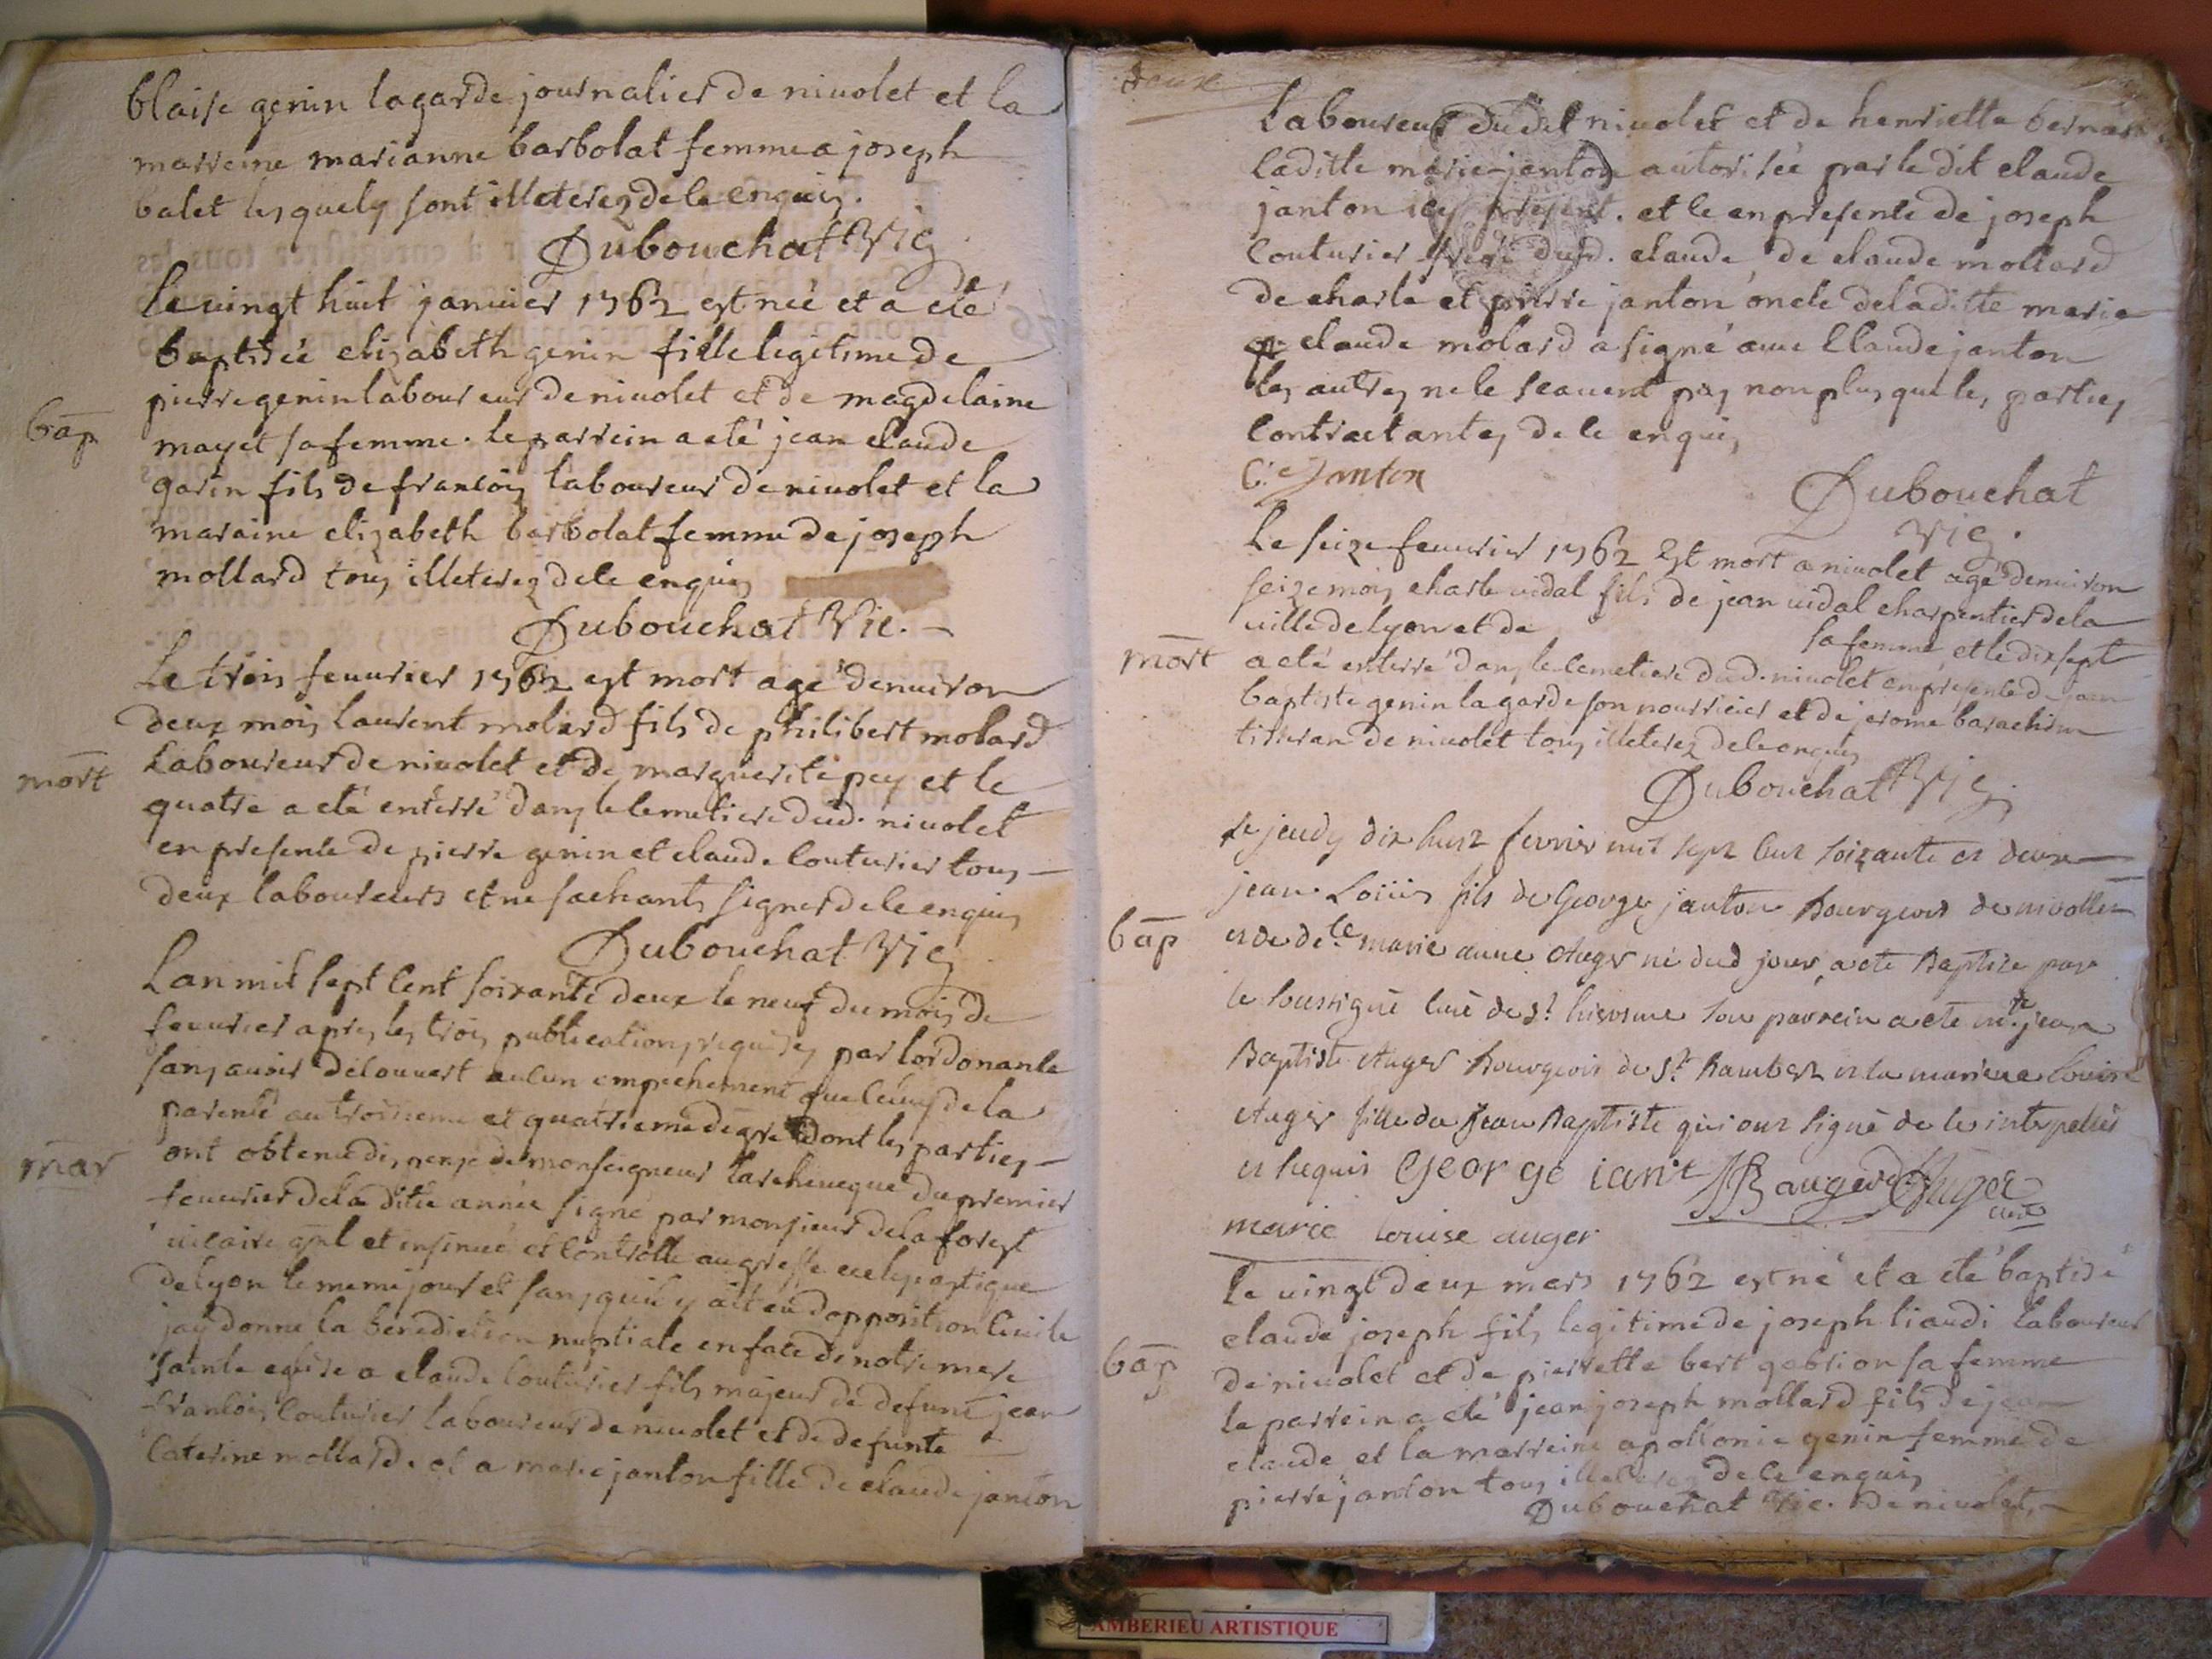 blaise genin lagarde journalier de niuolet et la
marreine marianne barbolat femme a joseph
balet lesquels sont illeterez de ce enquis.
Dubouchat Vic
Le uingt huit januier 1762 est neé et a eté
baptiseé elizabeth genin fille legitime de
pierre genin laboureur de niuolet et de magdelaine
bap
mayet sa femme. le parrein a eté jean claude
garin fils de francois laboureur de niuolet et la
maraine elizabeth barbolat femme de joseph
mollard tous illeterez de ce enquis
Dubouchat Vic.
Le trois feuurier 1762 est mort agé denuiron
deux mois laurent molard fils de philibert molard
mort
laboureur de niuolet et de marguerite pey et le
quatre a eté enterré dans le cemetiere dud. niuolet
en presence de pierre genin et claude couturier tous
deux laboureurs et ne sachants signer de ce enquis
Dubouchat Vic
Lan mil sept cent soixante deux le neuf du mois de
feuurier apres les trois publications requises par lordonance
sans auoir decouuert aucun empechement que celuy de la
parenté au troisieme et quatrieme degré dont les parties
mar
ont obtenu dispense de monseigneur larcheueque du premier
feuurier de la ditte année signé par monsieur de la forest
uicaire gnl et insinué et controllé au greffe eclesiastique
de lyon le meme jour et sans quil y ait eu dopposition ciuile
jay donné la benediction nuptiale en face de notre mere
sainte eglise a claude couturier fils majeur de defunt jean
francois couturier laboureur de niuolet et de defunte
caterine mollard. et a marie janton fille de claude janton
deux
laboureur dudit niuolet et de henriette
laditte marie janton autorisée par le dit claude
janton icy present. et ce en presence de joseph
couturier frere dud. claude, de claude mollard
de charle et pierre janton oncle de laditte marie
claude molard a signé auec Claude janton
les autres ne le scauent pas non plus que les parties
contractantes de ce enquis
C. Janton
Dubouchat
Vic.
Le seize feuurier 1762 est mort a niuolet agé denuiron
seize mois charle uidal fils de jean uidal charpentier de la
uille de lyon et de sa femme et le dix sept
mort
a eté enterré dans le cemetiere dud. niuolet en presence de jean
baptiste genin lagarde son nourricier et de jerome
tisseran de niuolet tous illeterez de ce enquis
Dubouchat Vic
Le jeudy dix huit fevrier mil sept cent soixante et deux
jean Loüis fils de George janton Bourgeois de nivollet
bap
et de dlle marie anne Auger né dud jour a eté Baptisé par
le soussigné curé de st hierosme son parrein a eté mre jean
Baptiste Auger Bourgeois de St Rambert et la mareine Louise
Auger fille de Jean Baptiste qui ont signé de ce interpellés
et requis George iant JB auger Auger
curé
marie louise auger
Le uingt deux mars 1762 est né et a eté baptisé
claude joseph fils legitime de joseph liaudi laboureur
bap
de niuolet et de pierrette bert gabrion sa femme
le parrein a eté jean joseph mollard fils de jean
claude et la marreine apollonie genin femme de
pierre janton tous illeterez de ce enquis
Dubouchat Vic. de niuolet.
AMBERIEU ARTISTIQUE